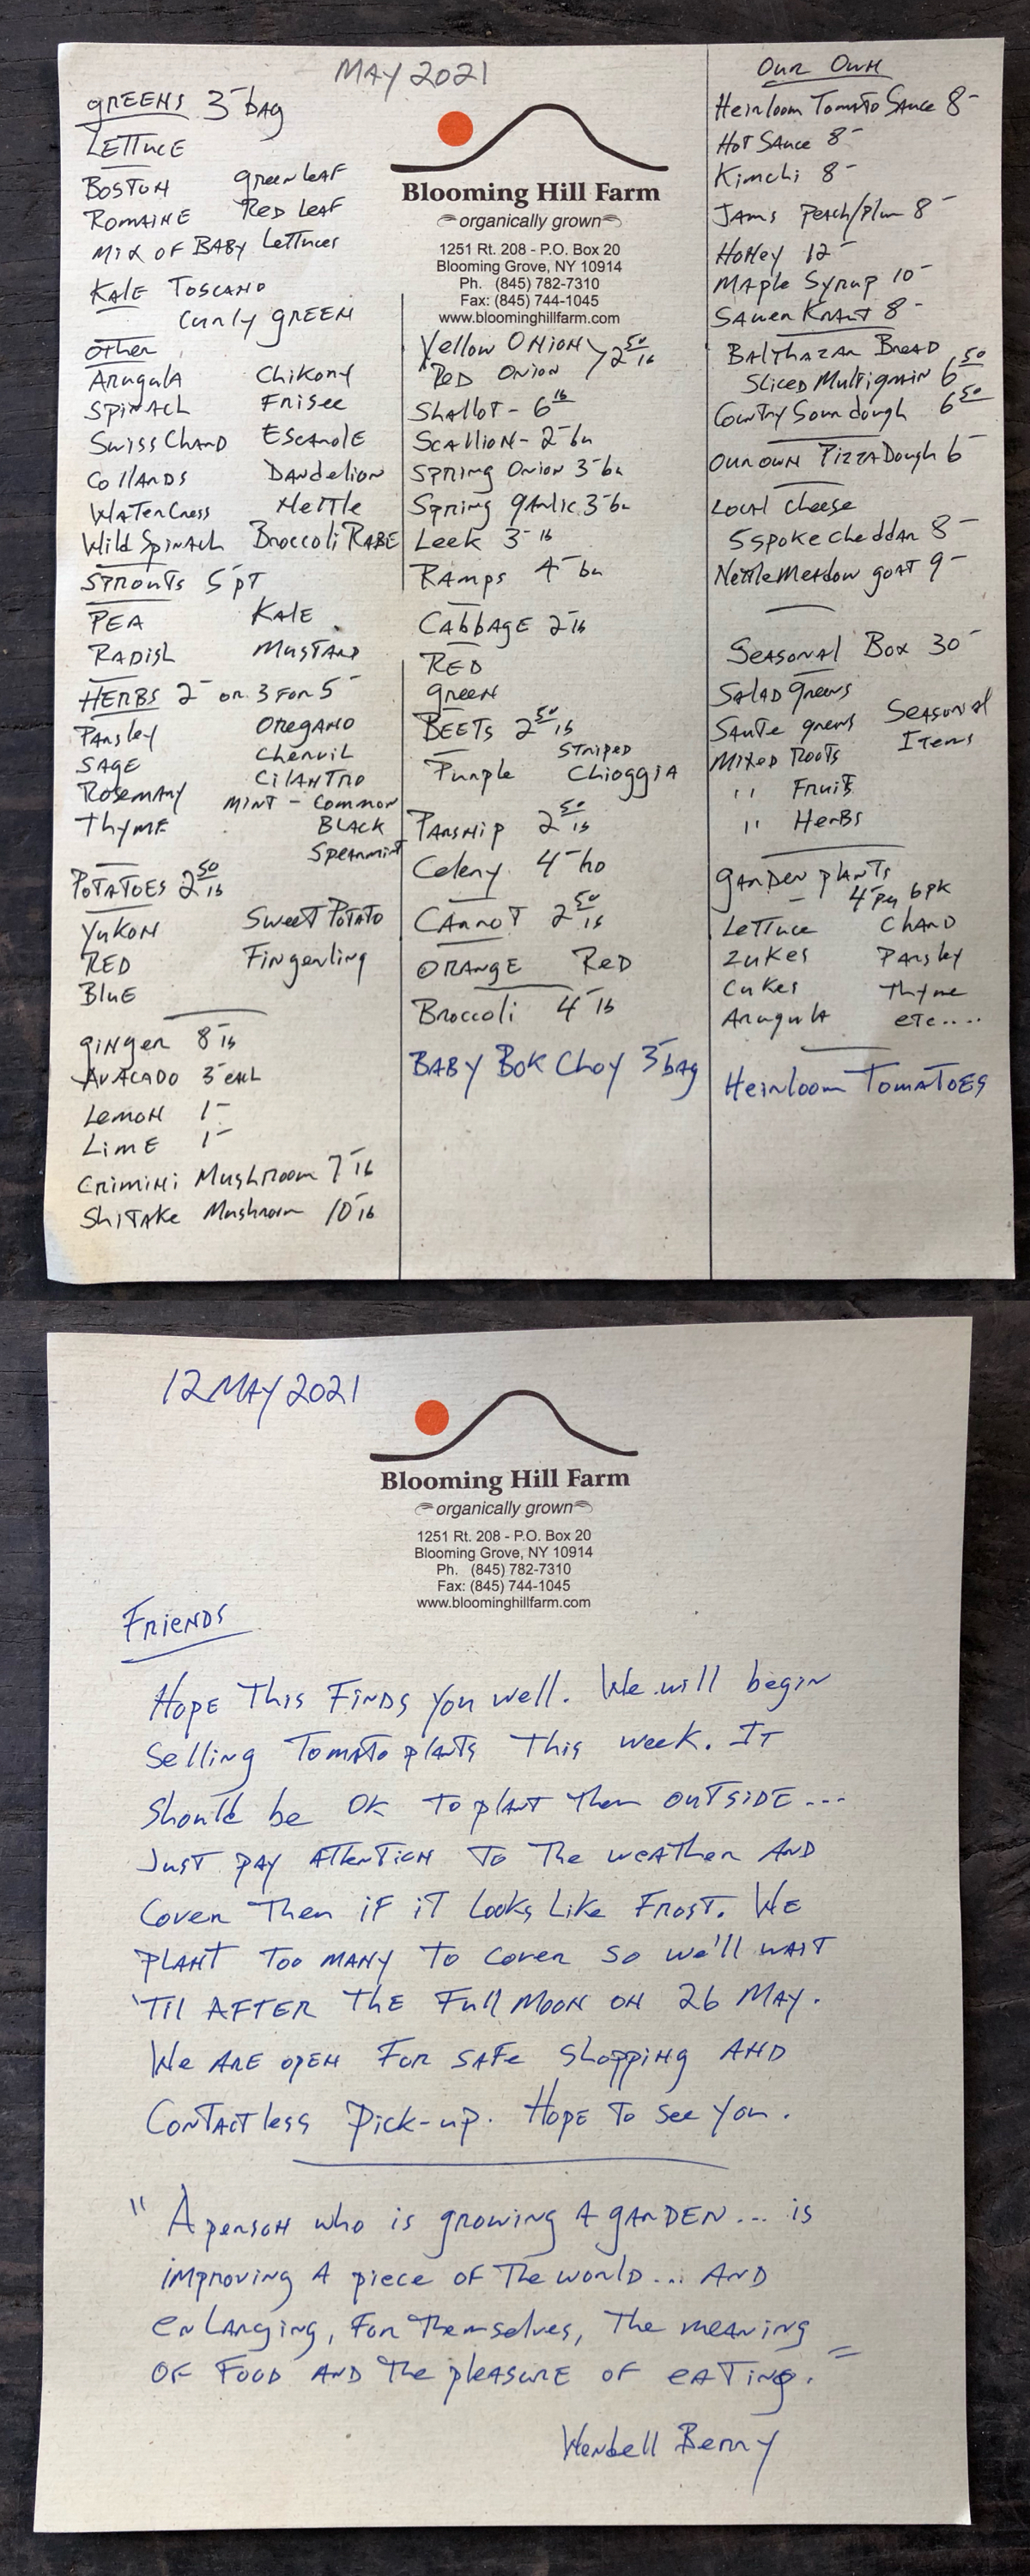 MAY 2021
GREENS 3- bag
LETTUCE
BOSTON green leaf
ROMAINE Red Leaf
Mix of BABY Lettuces
KALE TOSCANO
Curly GREEN
OTHER
Arugula Chikory
SPINACH Frisee
Swiss Chard Escarole
Collards Dandelion
WaterCress Nettle
Wild Spinach Broccoli RABE
SPROUTS 5- pT
PEA KALE
RADISH MUSTARD
HERBS 2- or 3 for 5-
Parsley OREGANO
SAGE Chervil
Rosemary CILANTRO
Thyme MINT - Common
BLACK
Spearmint
POTATOES 2 50 lb
YUKON Sweet Potato
RED Fingerling
BLUE
GINGER 8- lb
AVACADO 3- each
LEMON 1-
LIME 1-
CRIMINI Mushroom 7- lb
ShiTake Mushroom 10- lb
Blooming Hill Farm
organically grown
1251 Rt. 208 - P.O. Box 20
Blooming Grove, NY 10914
Ph. (845) 782-7310
Fax: (845) 744-1045
www.bloominghillfarm.com
Yellow ONION
RED ONION 2 50 lb
Shallot - 6 lb
Scallion - 2- bu
Spring Onion 3- bu
Spring garlic 3- bu
Leek 3- lb
RAMPS 4- bu
CABBAGE 2- lb
RED
green
BEETS 2 50 lb
Purple STRIPED
Chioggia
PARSNIP 2 50 lb
Celery 4- hd
CARROT 2 50 lb
ORANGE RED
Broccoli 4- lb
BABY BOK CHOY 3- bag
OUR OWN
Heirloom Tomato Sauce 8-
Hot Sauce 8-
Kimchi 8-
JAMS Peach/Plum 8-
HONEY 12-
Maple Syrup 10-
Sauer Kraut 8-
Balthazar Bread
Sliced Multigrain 6 50
Country Sourdough 6 50
Our own PIZZA Dough 6-
Local cheese
5 spoke cheddar 8-
Nettle Meadow goat 9-
Seasonal Box 30-
Salad greens
Saute greens Seasonal
Mixed Roots Items
" Fruit
" Herbs
garden plants
4- per 6 pk
Lettuce Chard
Zukes Parsley
Cukes Thyme
Arugula etc....
Heirloom Tomatoes
12 MAY 2021
Blooming Hill Farm
organically grown
1251 Rt. 208 - P.O. Box 20
Blooming Grove, NY 10914
Ph. (845) 782-7310
Fax: (845) 744-1045
www.bloominghillfarm.com
Friends
Hope This Finds you well. We will begin
selling Tomato plants this week. It
should be OK to plant them outside...
Just pay attention to the weather and
cover them if it looks like frost. We
plant too many to cover so we'll wait
'til after the full moon on 26 May.
We are open for safe shopping and
contactless pick-up. Hope to see you.
"A person who is growing a garden... is
improving a piece of the world... and
enlarging, for themselves, the meaning
of food and the pleasure of eating."
Wendell Berry